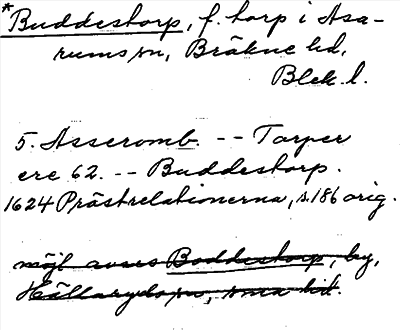 *Buddestorp, f. torp i Asa-
rums sn, Bräkne hd,
Blek. l.
5. Asseromb. -- Torper
ere 62. -- Buddestorp.
1624 Prästrelationerna, s. 186 orig.
möjl avses Boddestorp, by,
Hällaryds sn, sma hd.